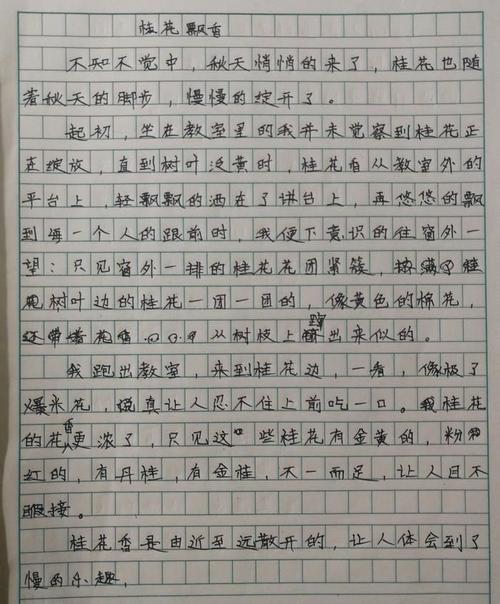 桂花飘香
不知不觉中，秋天悄悄的来了，桂花也随
着秋天的脚步，慢慢的绽开了。
起初，坐在教室里的我并未觉察到桂花正
在绽放，直到树叶泛黄时，桂花香从教室外的
平台上，轻飘飘的洒在了讲台上，再悠悠的飘
到每一个人的跟前时，我便下意识的往窗外一
望：只见窗外一排的桂花花团紧簇，挤满了桂
树叶边的桂花一团一团的，像黄色的棉花，
还带着花香从树枝上蹿出来似的。
我跑出教室，来到桂花边，一看，像极了
爆米花，说真让人忍不住上前吃一口。桂花
的花香更浓了，只见这些桂花有金黄的，粉
红的，有丹桂，有金桂，不一而足，让人目不
暇接。
桂花香是由近至远散开的，让人体会到了
慢的乐趣，